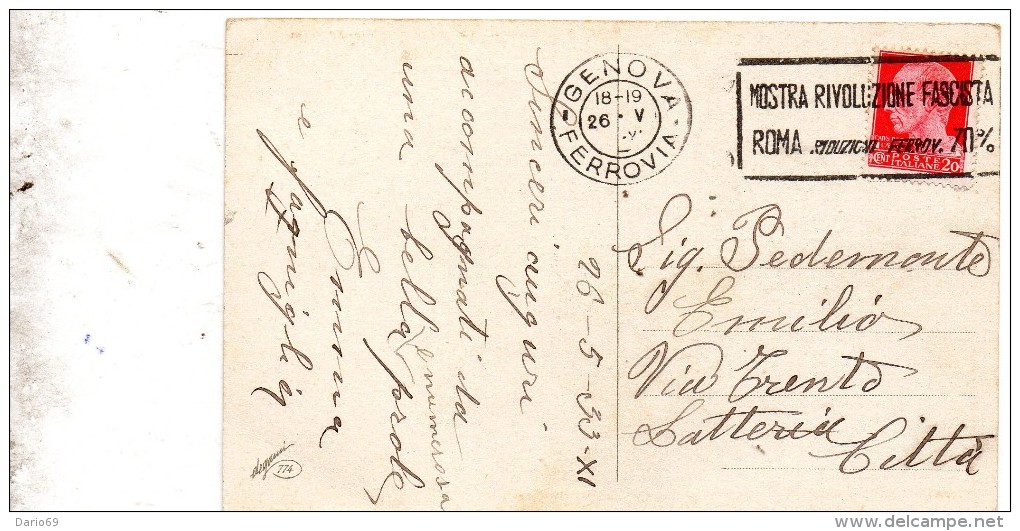 26-5-33-XI
Sinceri auguri
accompagnati da
una bella e numerosa prole
Emma
e famiglia
774
GENOVA
18-19
26 · V
FERROVIA
MOSTRA RIVOLUZIONE FASCISTA
ROMA RIDUZIONI FERROV. 70%
POSTE
ITALIANE
CENT 20
Sig. Pedemonte
Emilio
Via Trento
Latteria
Città
Dario69
www.delcampe.net